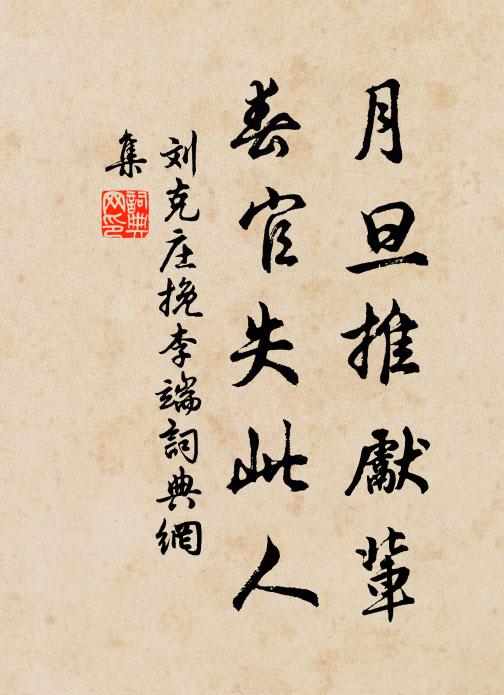 月旦推獻輩
春官失此人
刘克庄挽李端詞典網
集
詞典
网印